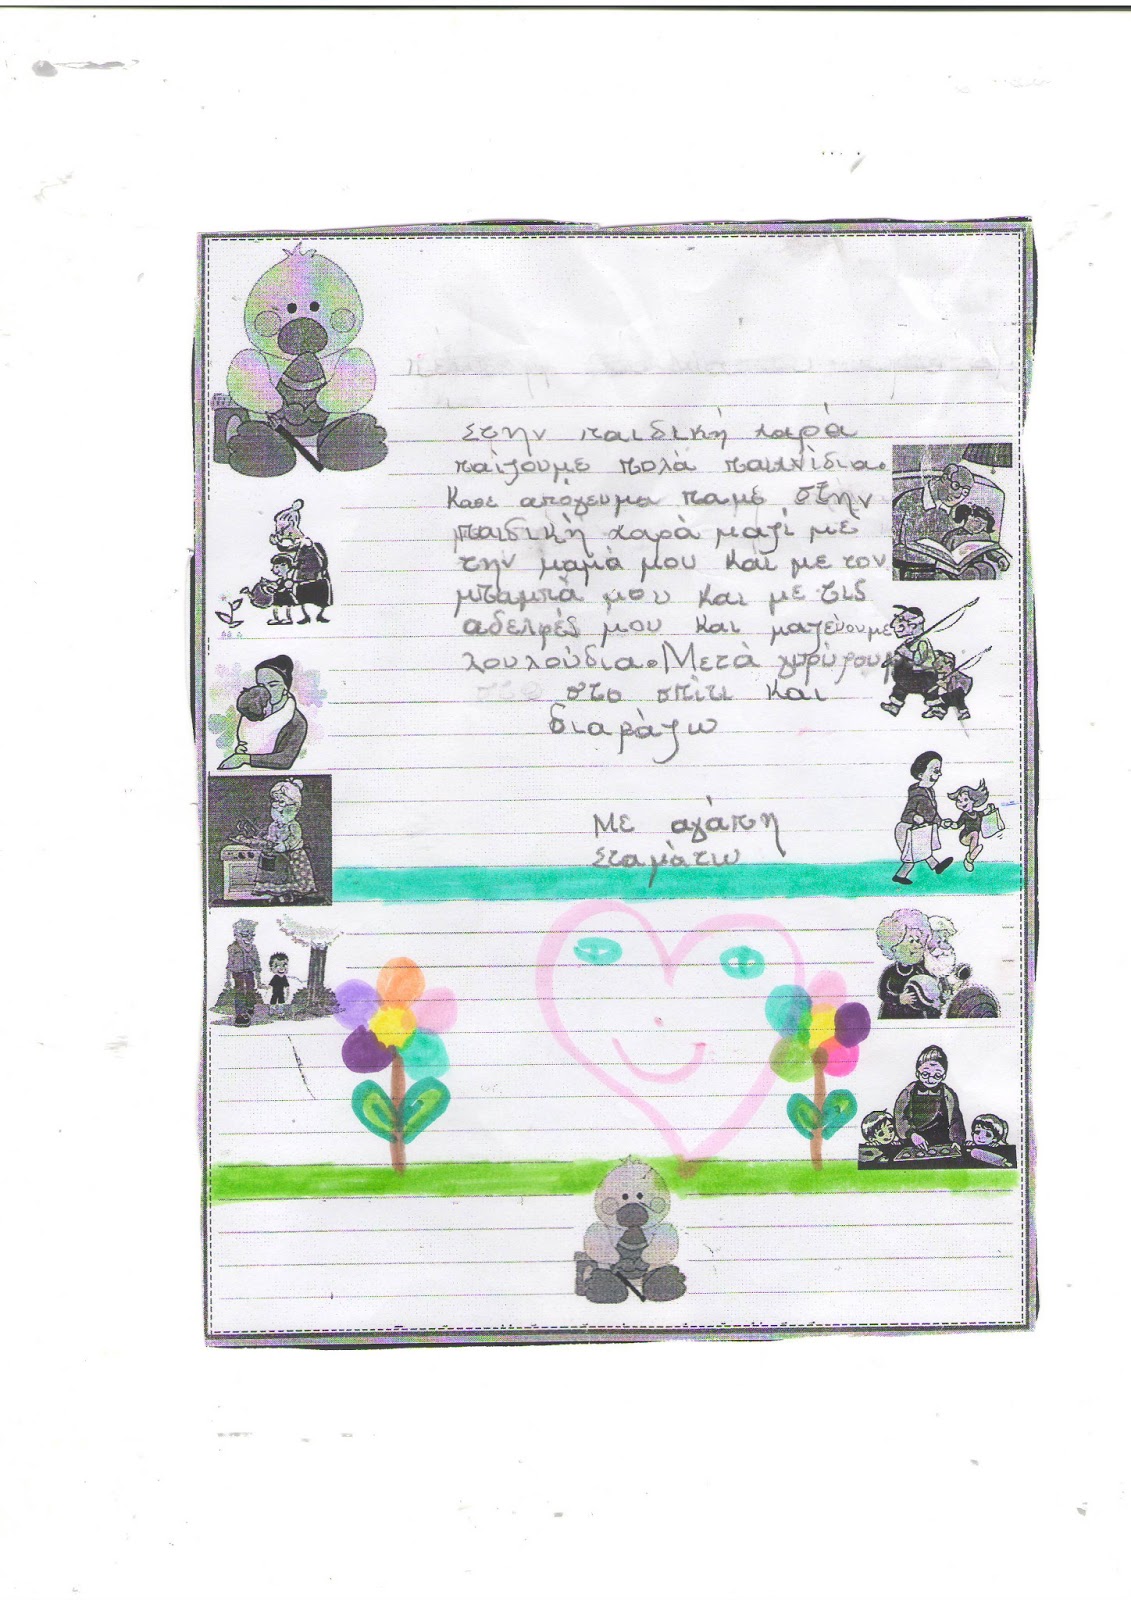 Στην παιδική χαρά
παίζουμε πολά παιχνίδια.
Κάθε απόγευμα παμέ στην
παιδική χαρά μαζί μέ
την μαμά μου και με τον
μπαμπά μου και με τις
αδελφές μου και μαζεύουμε
λουλούδια. Μετά
στο σπίτι και
διαράζω
Με αγάπη
Σταμάτω